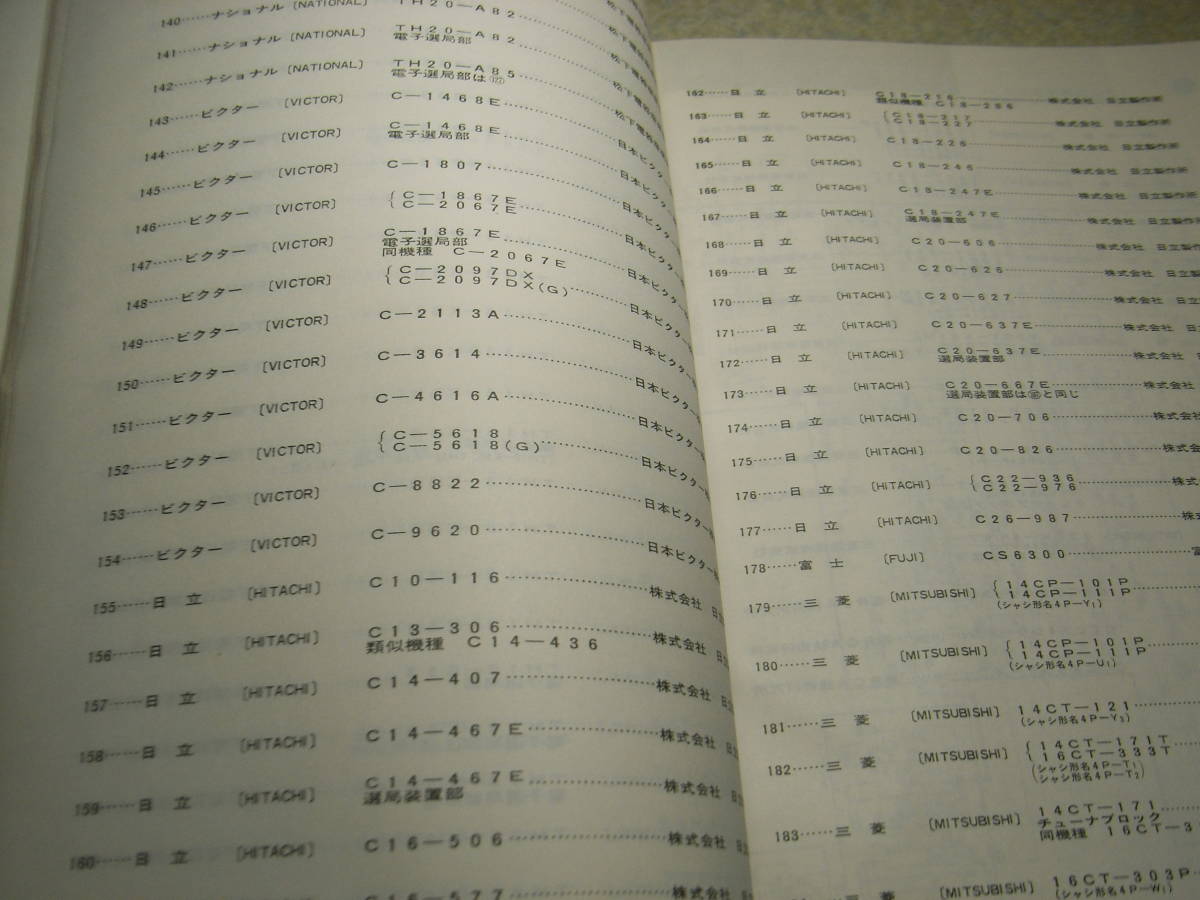 140……ナショナル〔NATIONAL〕 TH20—A82
141……ナショナル〔NATIONAL〕 TH20—A82
電子選局部
142……ナショナル〔NATIONAL〕 TH20—A85
電子選局部は
143……ビクター 〔VICTOR〕 C—1468E……日本ビクター
144……ビクター 〔VICTOR〕 C—1468E……日本ビクター
電子選局部
145……ビクター 〔VICTOR〕 C—1807……日本ビクター
146……ビクター 〔VICTOR〕 C—1867E
C—2067E……日本ビクター
147……ビクター 〔VICTOR〕 C—1867E……日本ビクター
電子選局部
同機種 C—2067E
148……ビクター 〔VICTOR〕 C—2097DX
C—2097DX(G)……日本ビクター
149……ビクター 〔VICTOR〕 C—2113A……日本ビクター
150……ビクター 〔VICTOR〕 C—3614……日本ビクター
151……ビクター 〔VICTOR〕 C—4616A……日本ビクター
152……ビクター 〔VICTOR〕 C—5618
C—5618(G)……日本ビクター
153……ビクター 〔VICTOR〕 C—8822……日本ビクター
154……ビクター 〔VICTOR〕 C—9620……日本ビクター
155……日 立 〔HITACHI〕 C10—116……株式会社 日
156……日 立 〔HITACHI〕 C13—306……株式会社 日
類似機種 C14—436
157……日 立 〔HITACHI〕 C14—407……株式会社 日
158……日 立 〔HITACHI〕 C14—467E……株式会社 日
159……日 立 〔HITACHI〕 C14—467E……株式会社 日
選局装置部
160……日 立 〔HITACHI〕 C16—506……株式会社 日
C16—577……株式会社
162……日 立 〔HITACHI〕 C18—216……株式会社 日立製作所
類似機種 C18—286
163……日 立 〔HITACHI〕 C18—217
C18—227……株式会社 日立製作所
164……日 立 〔HITACHI〕 C18—226……株式会社 日立製作所
165……日 立 〔HITACHI〕 C18—246……株式会社 日立製作所
166……日 立 〔HITACHI〕 C18—247E……株式会社 日立製作所
167……日 立 〔HITACHI〕 C18—247E……株式会社 日立製作所
選局装置部
168……日 立 〔HITACHI〕 C20—606……株式会社 日立製作
169……日 立 〔HITACHI〕 C20—626……株式会社 日立製作
170……日 立 〔HITACHI〕 C20—627……株式会社 日立製
171……日 立 〔HITACHI〕 C20—637E……株式会社 日立
172……日 立 〔HITACHI〕 C20—637E……株式会社
選局装置部
173……日 立 〔HITACHI〕 C20—667E……株式会社
選局装置部は と同じ
174……日 立 〔HITACHI〕 C20—706……株式会
175……日 立 〔HITACHI〕 C20—826……株式会
176……日 立 〔HITACHI〕 C22—936
C22—976……株式
177……日 立 〔HITACHI〕 C26—987……株
178……富 士 〔FUJI〕 CS6300……富
179……三 菱 〔MITSUBISHI〕 14CP—101P
14CP—111P
(シャシ形名4P—Y₁)
180……三 菱 〔MITSUBISHI〕 14CP—101P
14CP—111P
(シャシ形名4P—U₁)
181……三 菱 〔MITSUBISHI〕 14CT—121
(シャシ形名4P—Y₃)
182……三 菱 〔MITSUBISHI〕 14CT—171T
16CT—333T
(シャシ形名4P—T₁)
(シャシ形名4P—T₂)
183……三 菱 〔MITSUBISHI〕 14CT—171
チューナブロック
同機種 16CT—3
〔MITSUBISHI〕 16CT—303P
(シャシ形名4P—W₁)